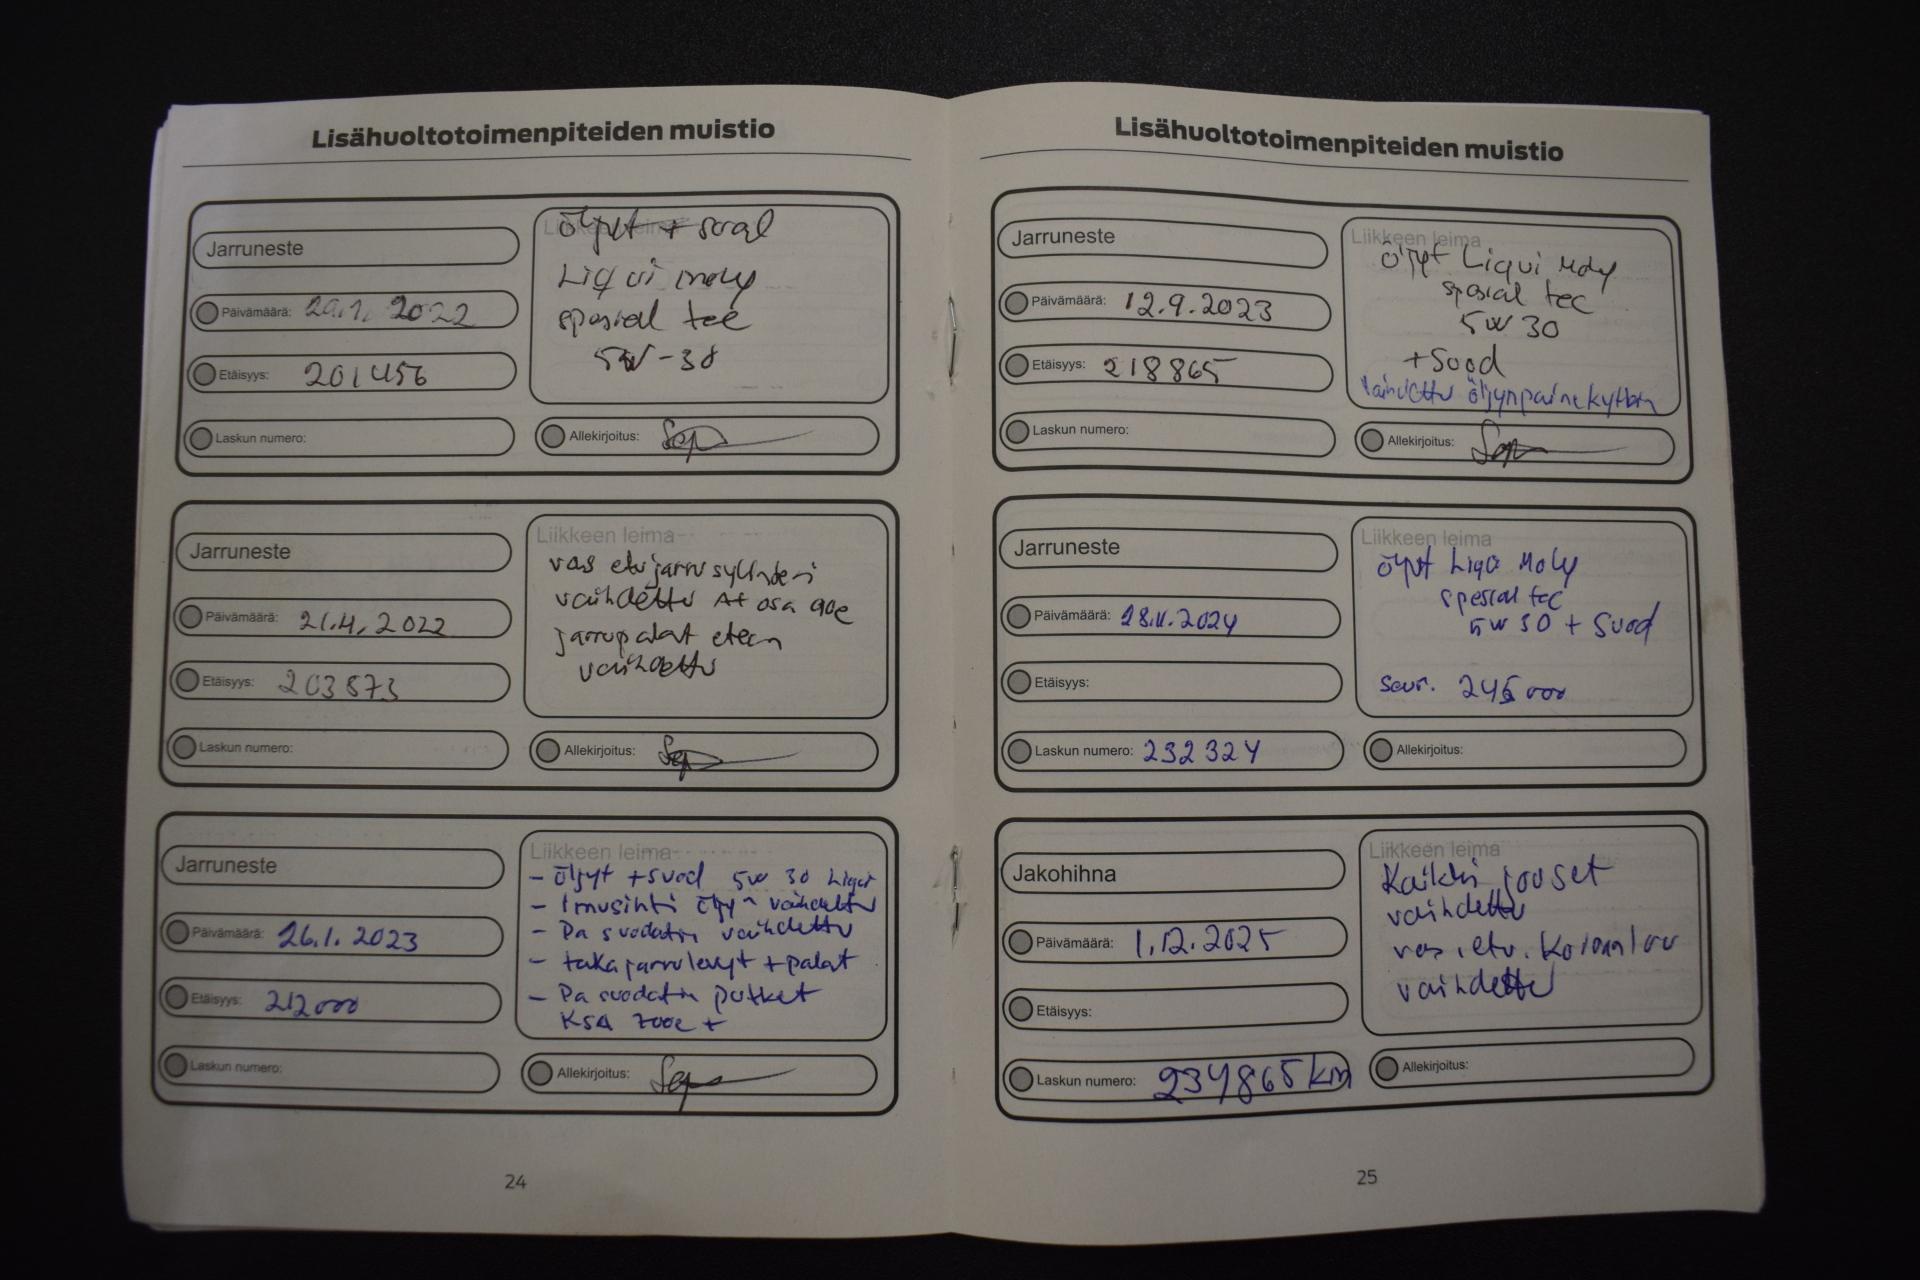 Lisähuoltotoimenpiteiden muistio
Jarruneste
Päivämäärä: 20.1. 2022
Etäisyys: 201456
Laskun numero:
Liikkeen leima
öljyt + suod
Liqui moly
spesial tec
5W-30
Allekirjoitus:
Jarruneste
Päivämäärä: 21.4.2022
Etäisyys: 203873
Laskun numero:
Liikkeen leima
vas etujarrusylinderi
vaihdettu At osa 90e
jarrupalat eteen
vaihdettu
Allekirjoitus:
Jarruneste
Päivämäärä: 26.1.2023
Etäisyys: 212000
Laskun numero:
Liikkeen leima
- öljyt + suod 5w 30 Liqui
- Imusihti öljyn vaihdettu
- Pa suodatin vaihdettu
- takajarrulevyt + palat
- Pa suodatin putket
KSA 700e +
Allekirjoitus:
24
Lisähuoltotoimenpiteiden muistio
Jarruneste
Päivämäärä: 12.9.2023
Etäisyys: 218865
Laskun numero:
Liikkeen leima
öljyt Liqui Moly
spesial tec
5W 30
+ Suod
vaihdettu öljynpainekytkin
Allekirjoitus:
Jarruneste
Päivämäärä: 28.11.2024
Etäisyys:
Laskun numero: 232324
Liikkeen leima
öljyt Liqui Moly
spesial tec
5w 30 + Suod
seur. 245000
Allekirjoitus:
Jakohihna
Päivämäärä: 1.12.2025
Etäisyys:
Laskun numero: 234865 km
Liikkeen leima
Kaikki jouset
vaihdettu
vas. etu.
vaihdettu
Allekirjoitus:
25